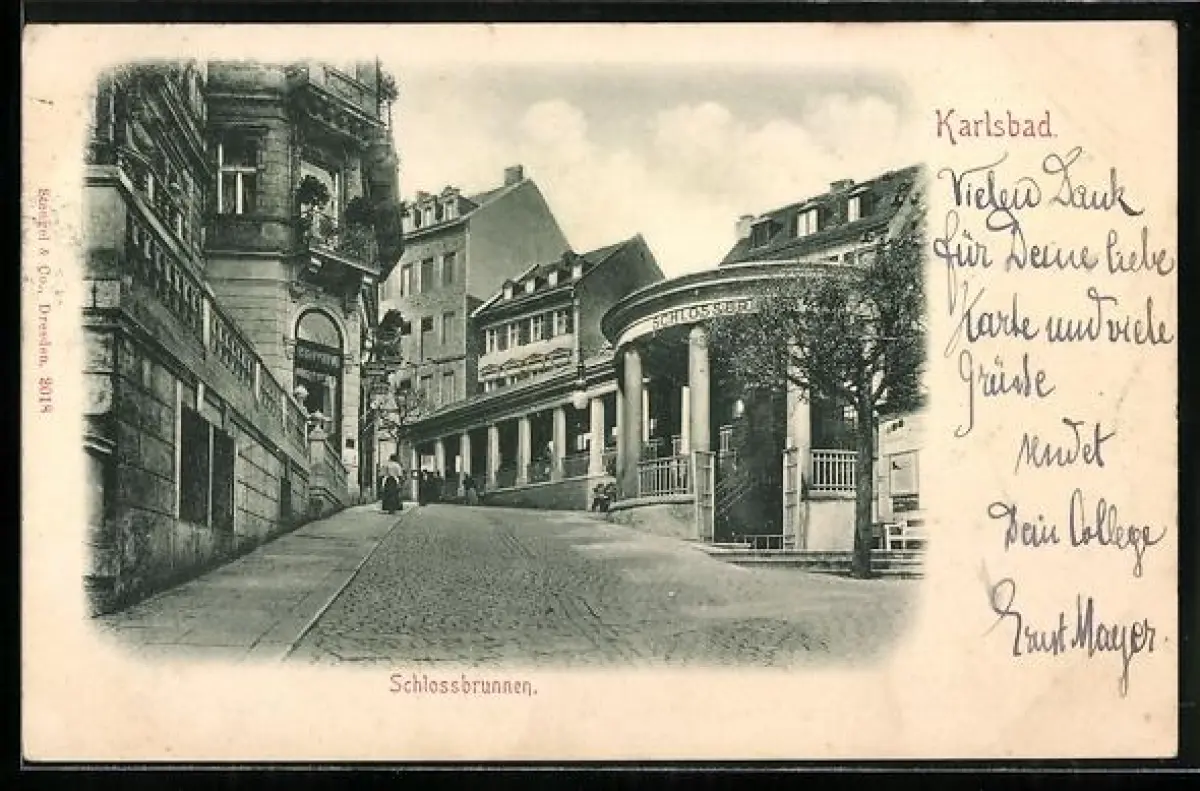 Karlsbad.
Vielen Dank
für Deine liebe
Karte und viele
Grüsse
sendet
Dein College
Ernst Mayer.
SCHLOSSBR
Schlossbrunnen.
Stengel & Co., Dresden. 2018